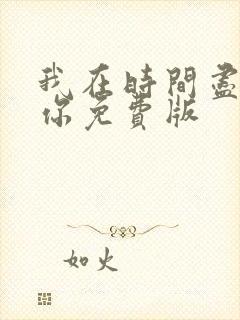 我在時間盡
你免費版
如火